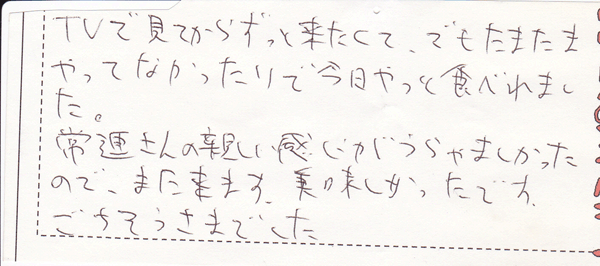 TVで見てからずっと来たくて、でもたまたま
やってなかったりで今日やっと食べれまし
た。
常連さんの親しい感じがうらやましかった
ので、また来ます。美味しかったです。
ごちそうさまでした